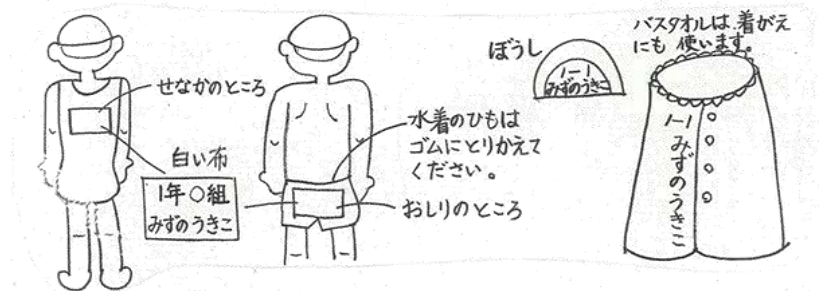 せなかのところ
白い布
1年○組
みずのうきこ
水着のひもは
ゴムにとりかえて
ください。
おしりのところ
ぼうし
1-1
みずのうきこ
バスタオルは、着がえ
にも使います。
1-1
みずのうきこ